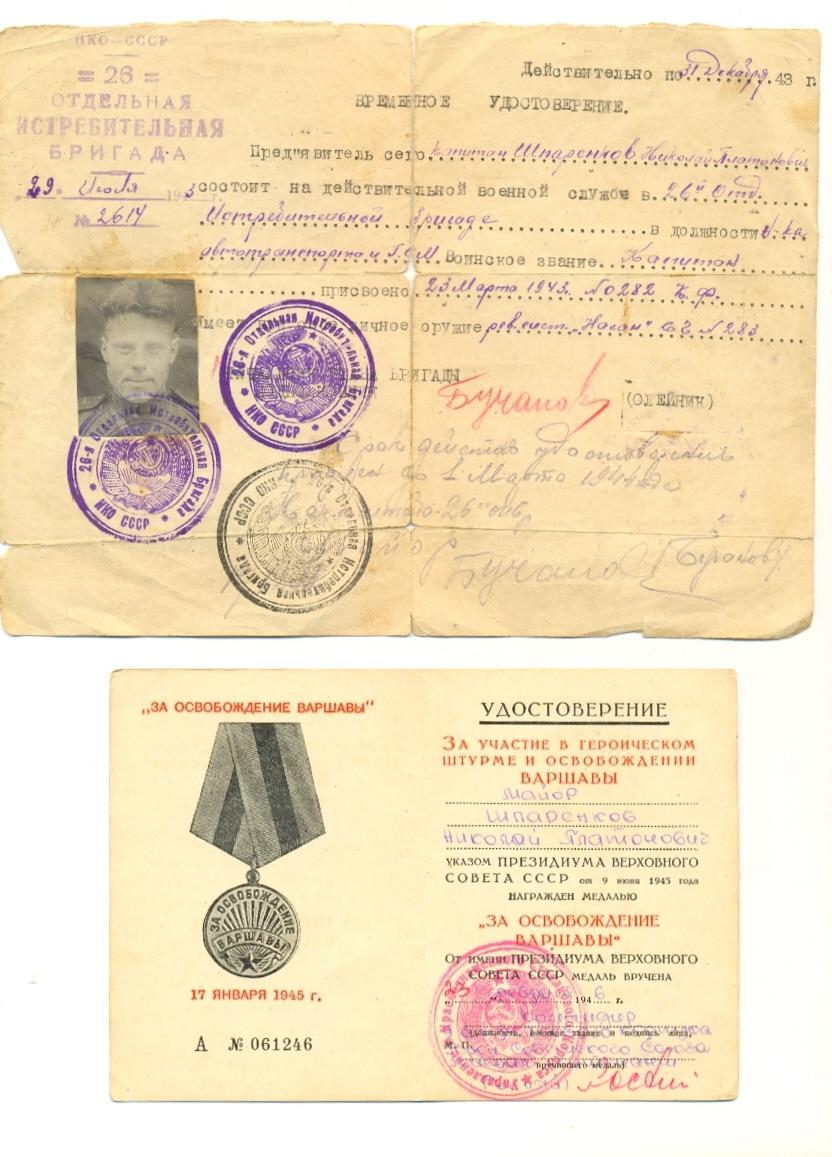 НКО—СССР
= 26 =
ОТДЕЛЬНАЯ
ИСТРЕБИТЕЛЬНАЯ
БРИГАДА
29. Июля 1943
№ 2614
Действительно по 31 Декабря 43 г.
ВРЕМЕННОЕ УДОСТОВЕРЕНИЕ.
Пред"явитель сего Капитан Шпаренков Николай Платонович
состоит на действительной военной службе в 26й Отд.
Истребительной бригаде в должности Н-ка
автотранспорта и ГСМ. Воинское звание. Капитан
присвоено 23 Марта 1943. № 0282 К.Ф.
Имеет личное оружие револьв. „Наган" № 283
БРИГАДЫ
Бучапов
(ОЛЕЙНИК)
26-я Отдельная Истребительная Бригада
НКО СССР
26-я Отдельная Истребительная Бригада
НКО СССР
Истребительная Бригада
НКО СССР
Срок действия удостоверения
до 1 Марта 1944 года
„ЗА ОСВОБОЖДЕНИЕ ВАРШАВЫ"
ЗА ОСВОБОЖДЕНИЕ
ВАРШАВЫ
17 ЯНВАРЯ 1945 г.
А № 061246
УДОСТОВЕРЕНИЕ
ЗА УЧАСТИЕ В ГЕРОИЧЕСКОМ
ШТУРМЕ И ОСВОБОЖДЕНИИ
ВАРШАВЫ
Майор
Шпаренков
Николай Платонович
УКАЗОМ ПРЕЗИДИУМА ВЕРХОВНОГО
СОВЕТА СССР от 9 июня 1945 года
НАГРАЖДЕН МЕДАЛЬЮ
„ЗА ОСВОБОЖДЕНИЕ
ВАРШАВЫ"
От имени ПРЕЗИДИУМА ВЕРХОВНОГО
СОВЕТА СССР МЕДАЛЬ ВРУЧЕНА
23 февраля 1946 г.
Командир
(должность, военное звание и подпись лица,
М. П.
Советского Союза
вручившего медаль)